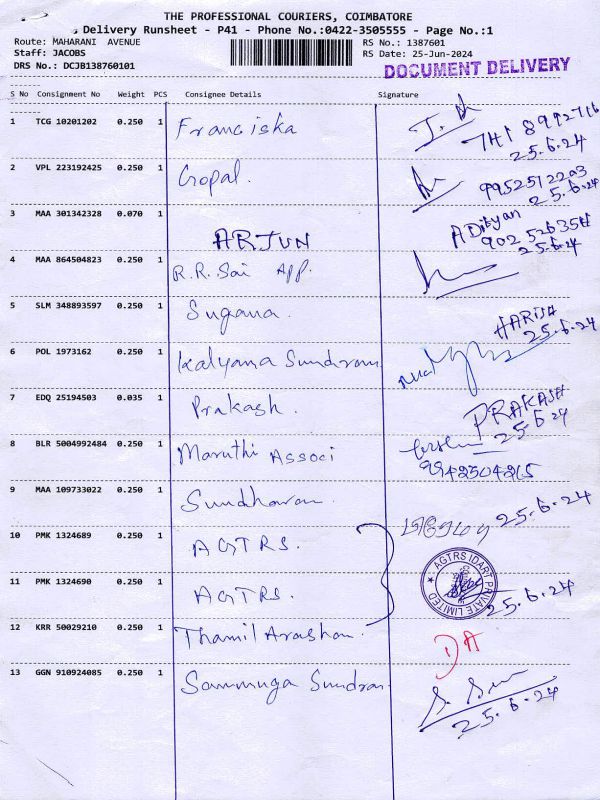 THE PROFESSIONAL COURIERS, COIMBATORE
Delivery Runsheet - P41 - Phone No.:0422-3505555 - Page No.:1
Route: MAHARANI AVENUE RS No.: 1387601
Staff: JACOBS RS Date: 25-Jun-2024
DRS No.: DCJB138760101 DOCUMENT DELIVERY
S No Consignment No Weight PCS Consignee Details Signature
1 TCG 10201202 0.250 1 Franciska
25.6.24
2 VPL 223192425 0.250 1 Gopal.
25.6.24
3 MAA 301342328 0.070 1 ARJUN ADityan
25.6.24
4 MAA 864504823 0.250 1 R.R. Sai App.
5 SLM 348893597 0.250 1 Sugana. HARISH
25.6.24
6 POL 1973162 0.250 1 Kalyana Sundram
7 EDQ 25194503 0.035 1 Prakash. PRAKASH
25.6.24
8 BLR 5004992484 0.250 1 Maruthi Associ
9942504265
9 MAA 109733022 0.250 1 Sundharam. 25.6.24
10 PMK 1324689 0.250 1 AGTRS.
11 PMK 1324690 0.250 1 AGTRS. AGTRS IDART PRIVATE LIMITED
25.6.24
12 KRR 50029210 0.250 1 Thamil Arashan. DA
13 GGN 910924085 0.250 1 Sanmuga Sundran
25.6.24